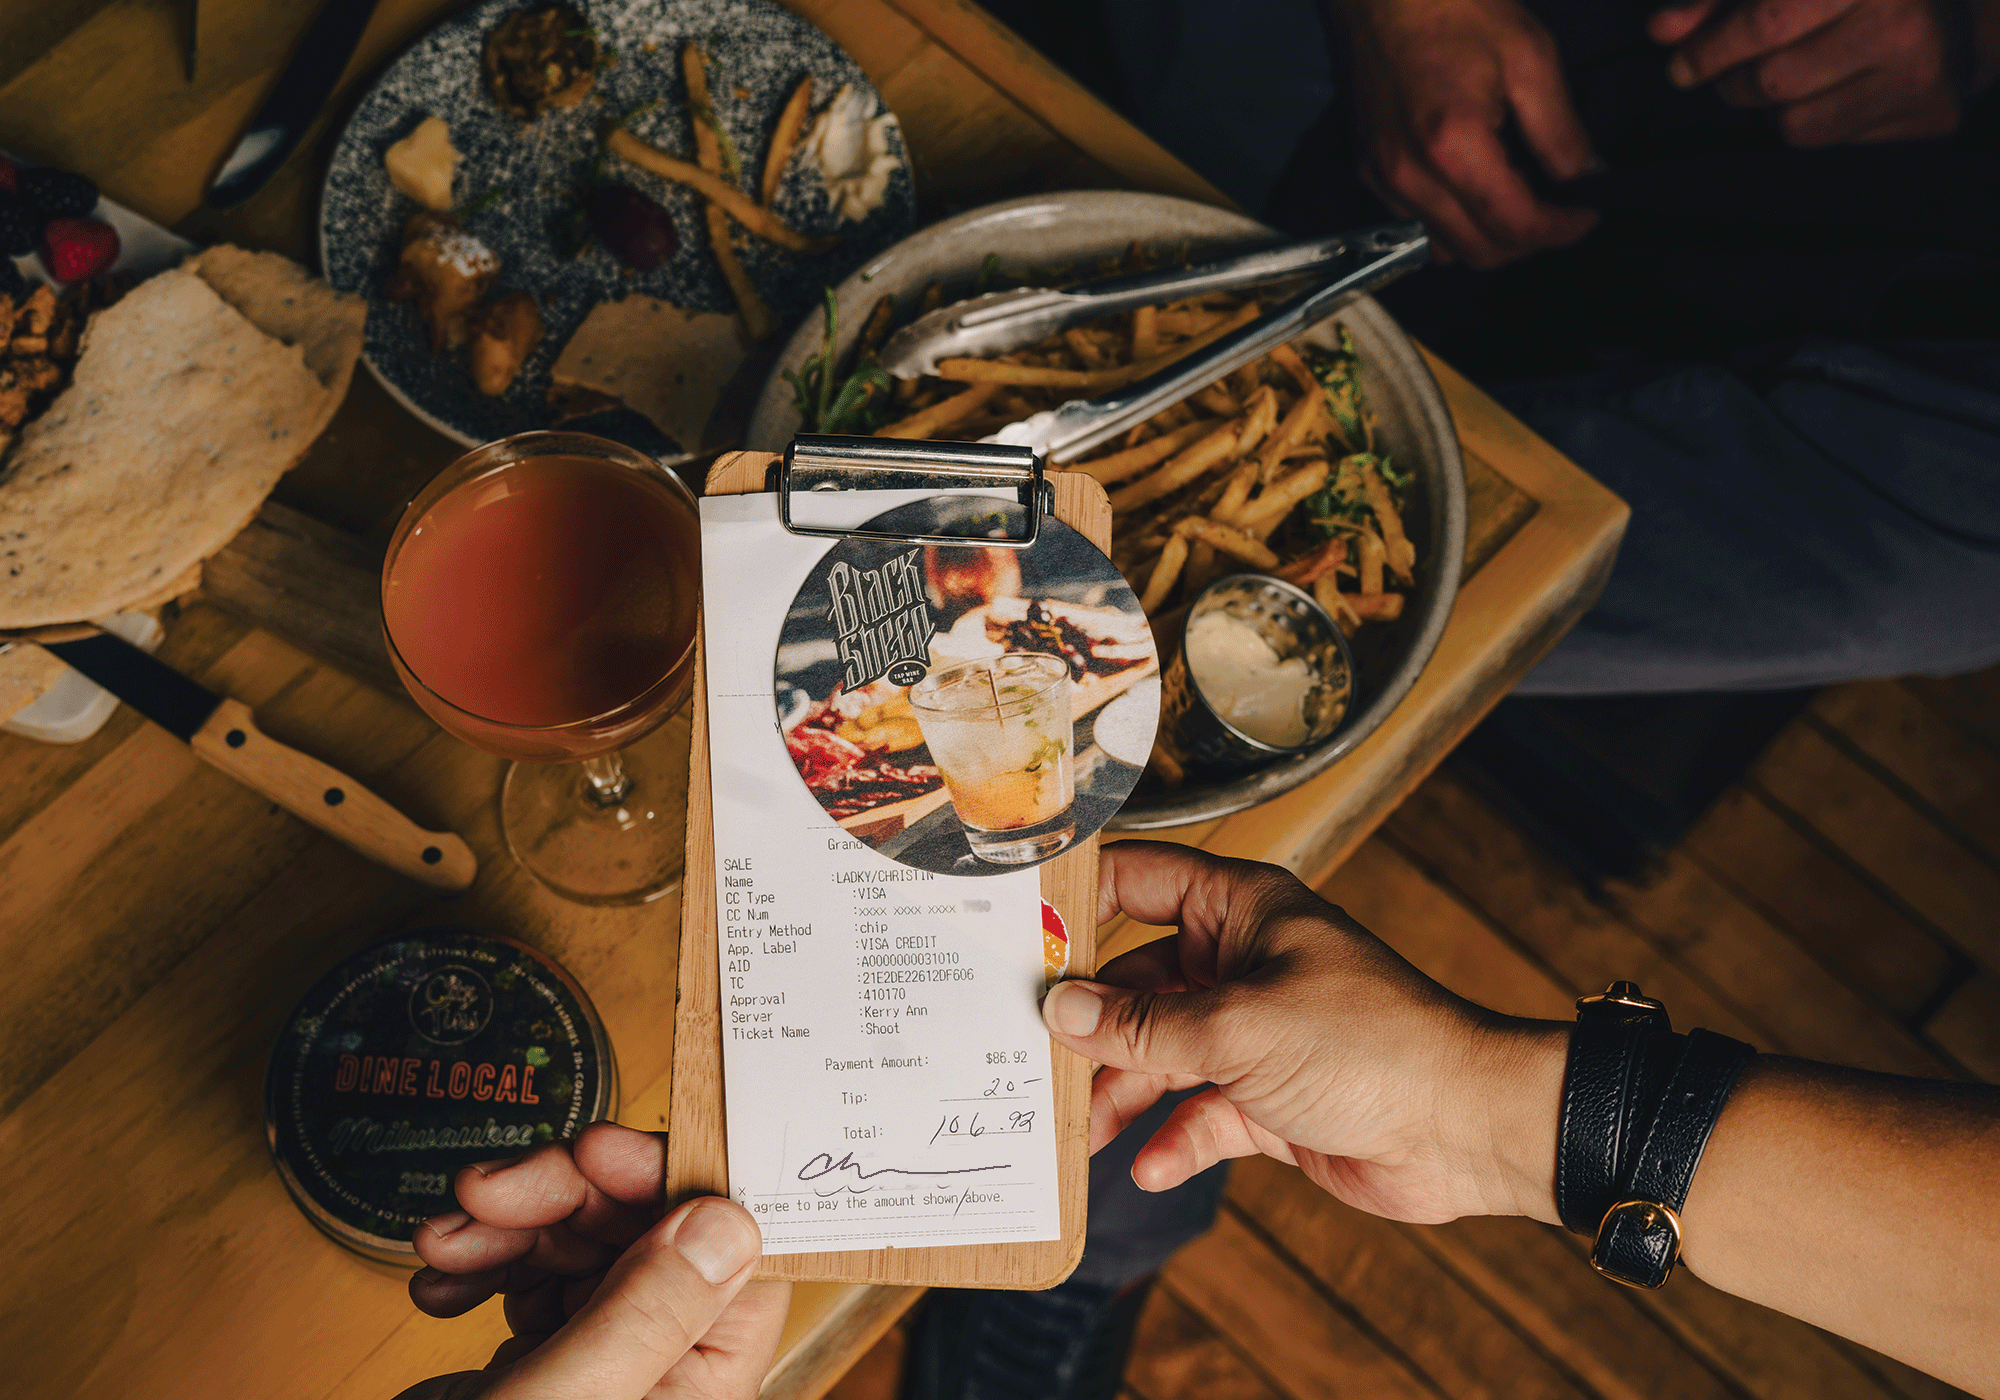 Black
Sheep
TAP WINE
BAR
Grand
SALE
Name :LADKY/CHRISTIN
CC Type :VISA
CC Num :xxxx xxxx xxxx
Entry Method :chip
App. Label :VISA CREDIT
AID :A0000000031010
TC :21E2DE22612DF606
Approval :410170
Server :Kerry Ann
Ticket Name :Shoot
Payment Amount: $86.92
Tip: 20-
Total: 106.92
X
I agree to pay the amount shown above.
City
Tins
DINE LOCAL
Milwaukee
2023